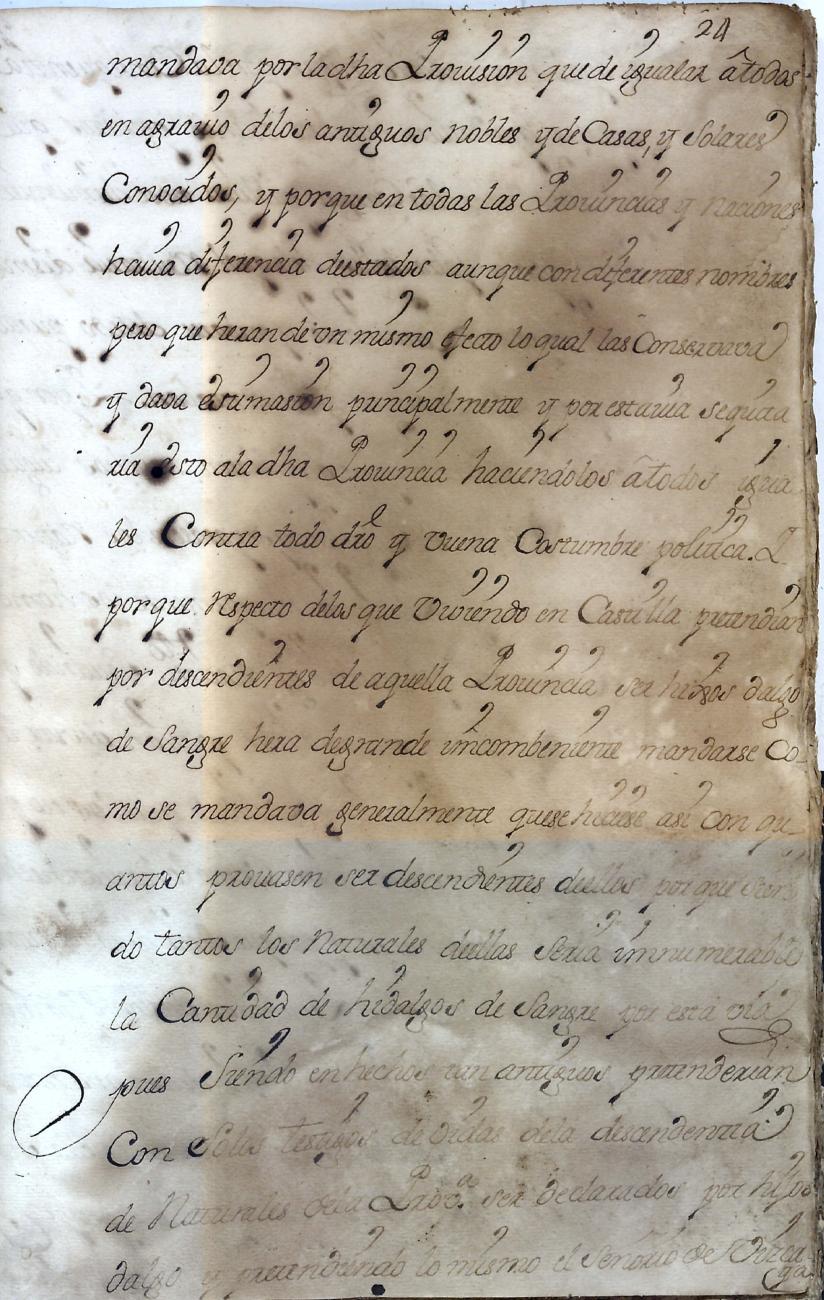 24
mandava por la dha Provision que de igualar â todos
en agravio de los antiguos nobles y de Casas, y Solares
Conocidos, y porque en todas las Provincias y naciones
havia diferencia de estados aunque con diferentes nombres
pero que heran de vn mismo efecto lo qual las Conservava
y dava estimasion principalmente y por esta via se quita
ria esto a la dha Provincia haciendolos â todos igua
les Contra todo dro y vuena Costumbre politica. Y
porque respecto de los que Viviendo en Castilla pretendian
por descendientes de aquella Provincia ser hijos dalgo
de Sangre hera de grande imcombeniente mandarse Co-
mo se mandava generalmente que se hiciese asi con qu-
antos provasen ser descendientes de ellos porque sien
do tantos los Naturales de ellas Seria imnumerable
la Cantidad de hidalgos de Sangre por esta via
pues Siendo en hechos tan antiguos pretenderian
Con Solos testigos de oidas de la descendencia
de Naturales de la Prova. ser declarados por hijos
dalgo y pretendiendo lo mismo el Señorio de Vizca-
ya